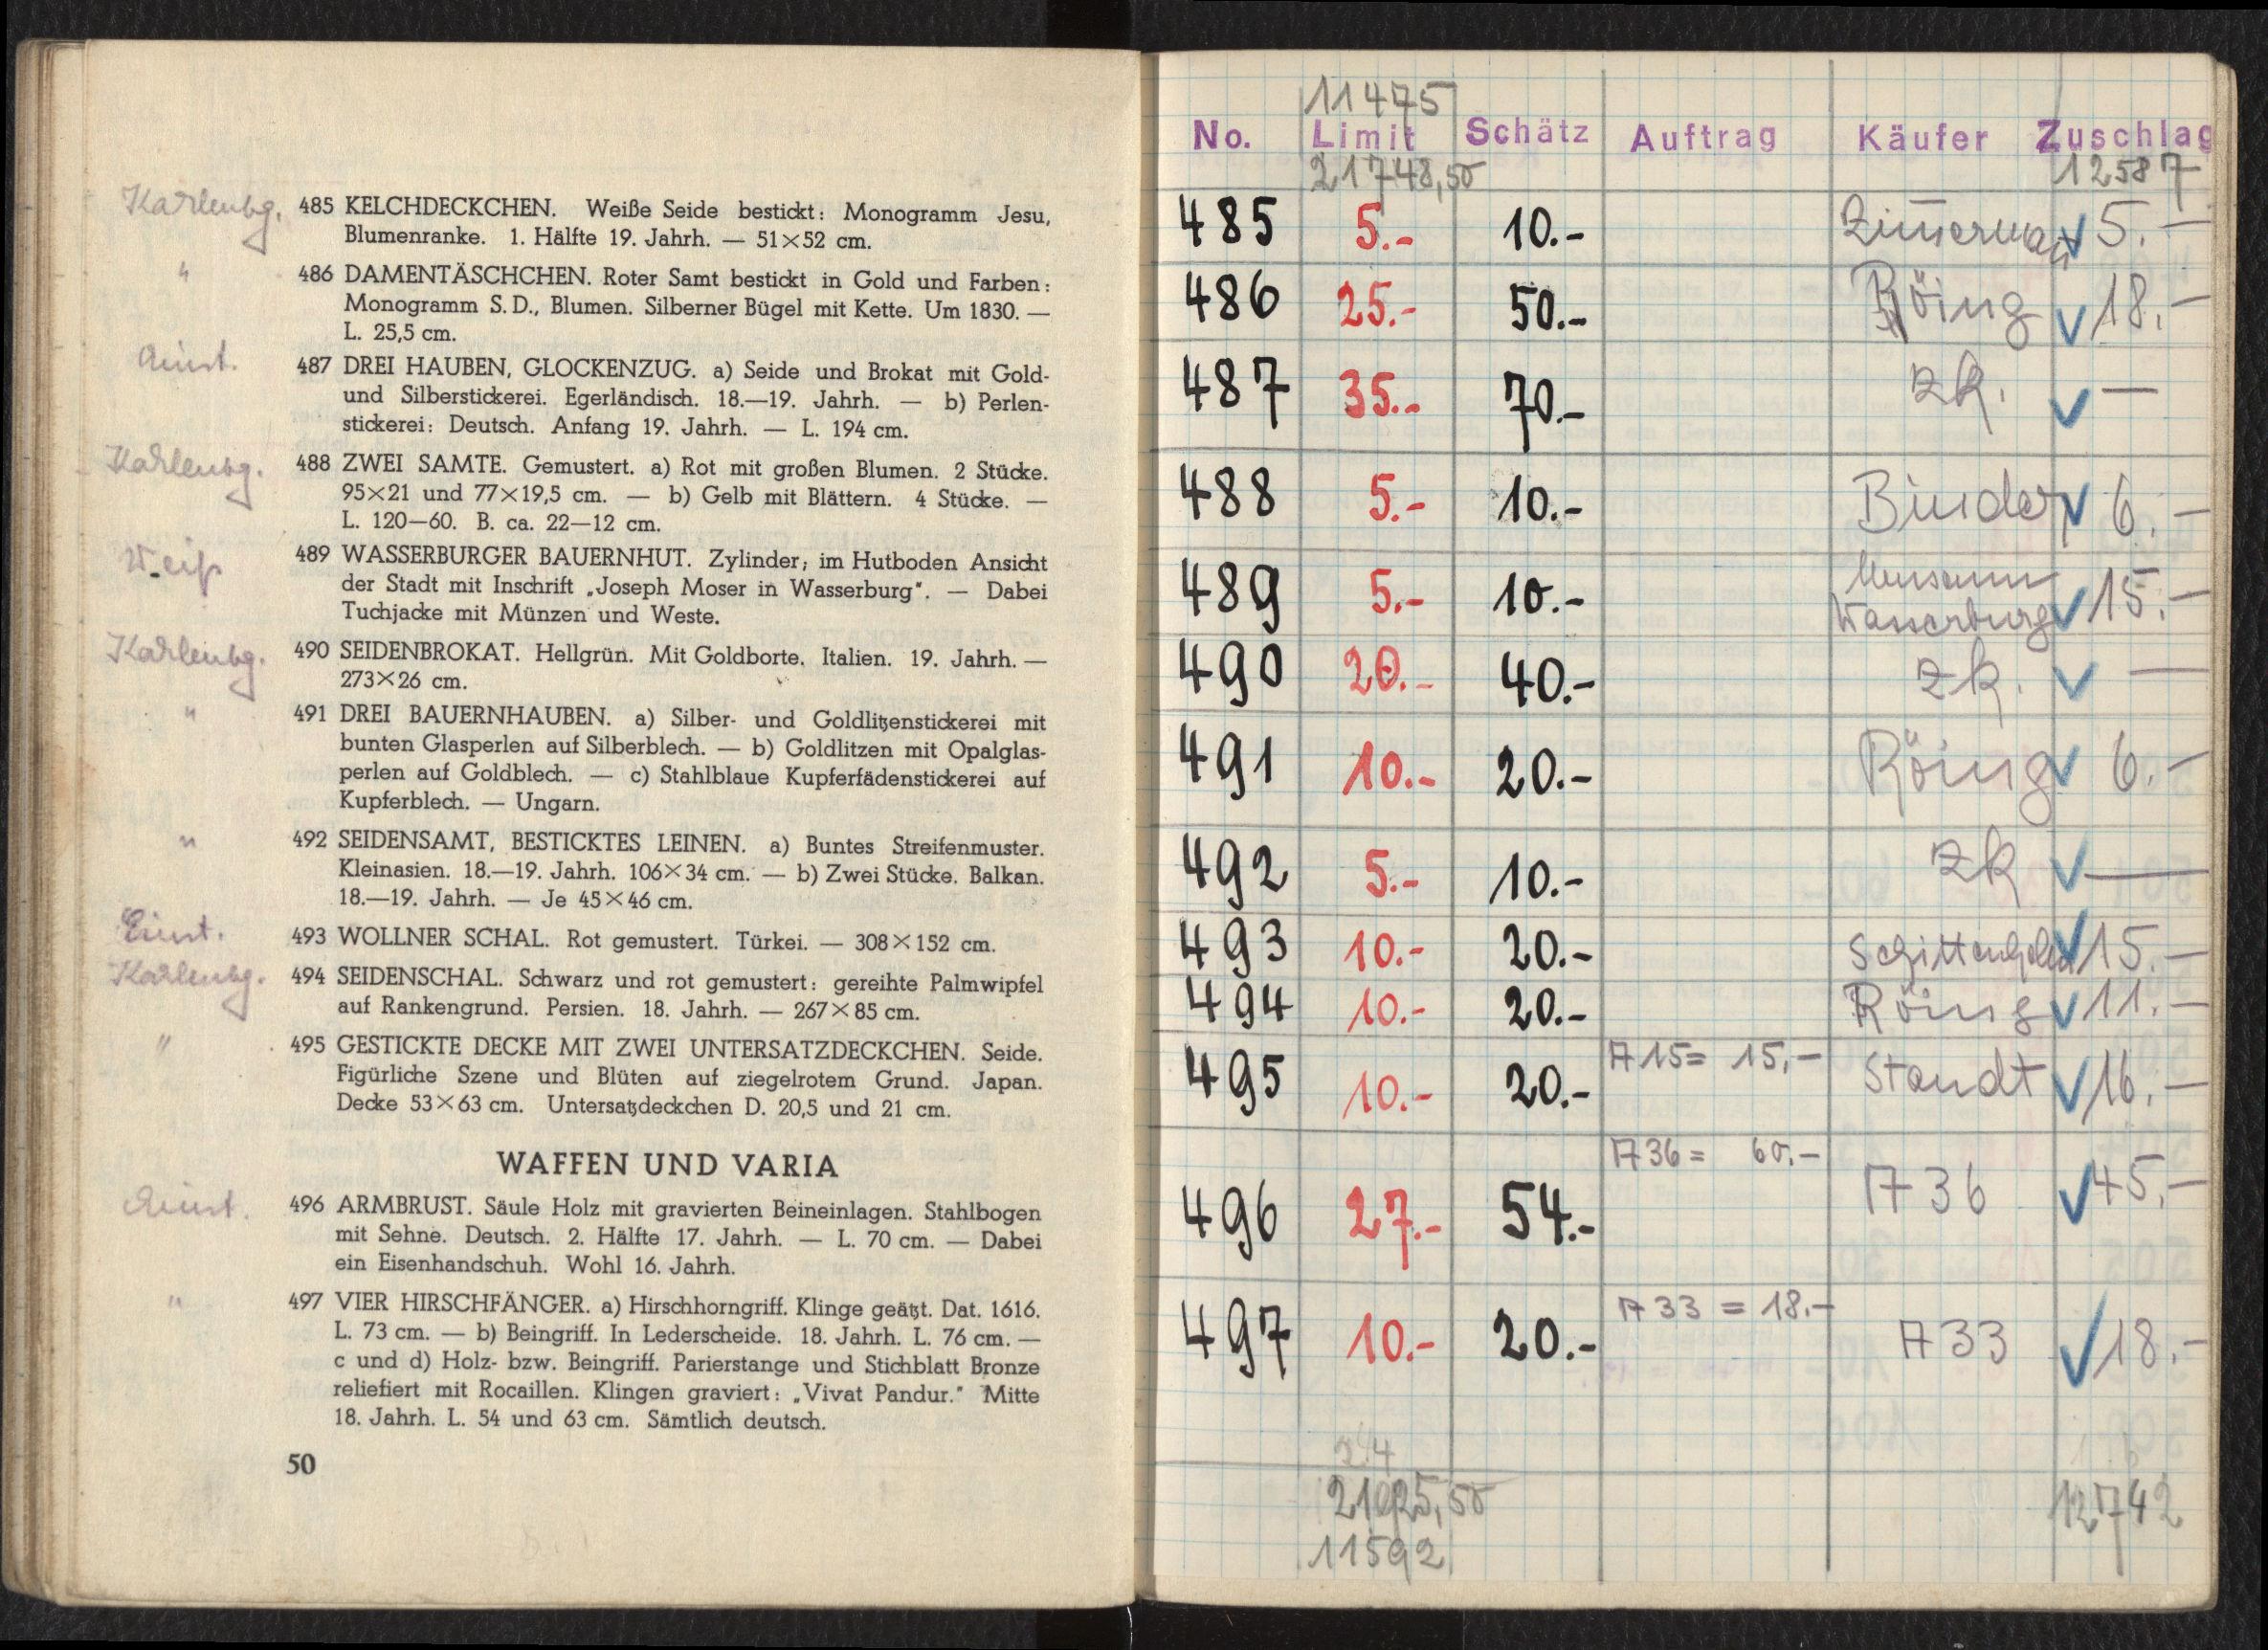 Karlenbg. 485 KELCHDECKCHEN. Weiße Seide bestickt: Monogramm Jesu,
Blumenranke. 1. Hälfte 19. Jahrh. — 51×52 cm.
" 486 DAMENTÄSCHCHEN. Roter Samt bestickt in Gold und Farben:
Monogramm S. D., Blumen. Silberner Bügel mit Kette. Um 1830. —
L. 25,5 cm.
487 DREI HAUBEN, GLOCKENZUG. a) Seide und Brokat mit Gold-
und Silberstickerei. Egerländisch. 18.—19. Jahrh. — b) Perlen-
stickerei: Deutsch. Anfang 19. Jahrh. — L. 194 cm.
Karlenbg. 488 ZWEI SAMTE. Gemustert. a) Rot mit großen Blumen. 2 Stücke.
95×21 und 77×19,5 cm. — b) Gelb mit Blättern. 4 Stücke. —
L. 120—60. B. ca. 22—12 cm.
Weiß 489 WASSERBURGER BAUERNHUT. Zylinder; im Hutboden Ansicht
der Stadt mit Inschrift „Joseph Moser in Wasserburg". — Dabei
Tuchjacke mit Münzen und Weste.
Karlenbg. 490 SEIDENBROKAT. Hellgrün. Mit Goldborte. Italien. 19. Jahrh. —
273×26 cm.
" 491 DREI BAUERNHAUBEN. a) Silber- und Goldlitzenstickerei mit
bunten Glasperlen auf Silberblech. — b) Goldlitzen mit Opalglas-
perlen auf Goldblech. — c) Stahlblaue Kupferfädenstickerei auf
Kupferblech. — Ungarn.
" 492 SEIDENSAMT, BESTICKTES LEINEN. a) Buntes Streifenmuster.
Kleinasien. 18.—19. Jahrh. 106×34 cm. — b) Zwei Stücke. Balkan.
18.—19. Jahrh. — Je 45×46 cm.
493 WOLLNER SCHAL. Rot gemustert. Türkei. — 308×152 cm.
Karlenbg. 494 SEIDENSCHAL. Schwarz und rot gemustert: gereihte Palmwipfel
auf Rankengrund. Persien. 18. Jahrh. — 267×85 cm.
" 495 GESTICKTE DECKE MIT ZWEI UNTERSATZDECKCHEN. Seide.
Figürliche Szene und Blüten auf ziegelrotem Grund. Japan.
Decke 53×63 cm. Untersatzdeckchen D. 20,5 und 21 cm.
WAFFEN UND VARIA
496 ARMBRUST. Säule Holz mit gravierten Beineinlagen. Stahlbogen
mit Sehne. Deutsch. 2. Hälfte 17. Jahrh. — L. 70 cm. — Dabei
ein Eisenhandschuh. Wohl 16. Jahrh.
" 497 VIER HIRSCHFÄNGER. a) Hirschhorngriff. Klinge geätzt. Dat. 1616.
L. 73 cm. — b) Beingriff. In Lederscheide. 18. Jahrh. L. 76 cm. —
c und d) Holz- bzw. Beingriff. Parierstange und Stichblatt Bronze
reliefiert mit Rocaillen. Klingen graviert: „Vivat Pandur." Mitte
18. Jahrh. L. 54 und 63 cm. Sämtlich deutsch.
50
11475
No. Limit Schätz Auftrag Käufer Zuschlag
21748,50 12587
485 5.- 10.- Zimmerman ✓ 5.—
486 25.- 50.- Röing ✓ 18.—
487 35.- 70.- zk. ✓ —
488 5.- 10.- Binder ✓ 6.—
489 5.- 10.- Museum
Wasserburg ✓ 15.—
490 20.- 40.- zk. ✓ —
491 10.- 20.- Röing ✓ 6.—
492 5.- 10.- zk ✓ —
493 10.- 20.- ✓ 15.—
494 10.- 20.- Röing ✓ 11.—
495 10.- 20.- A 15 = 15,— Staudt ✓ 16.—
496 27.- 54.- A 36 = 60.— A 36 ✓ 45.—
497 10.- 20.- A 33 = 18.— A 33 ✓ 18.—
12742
11592